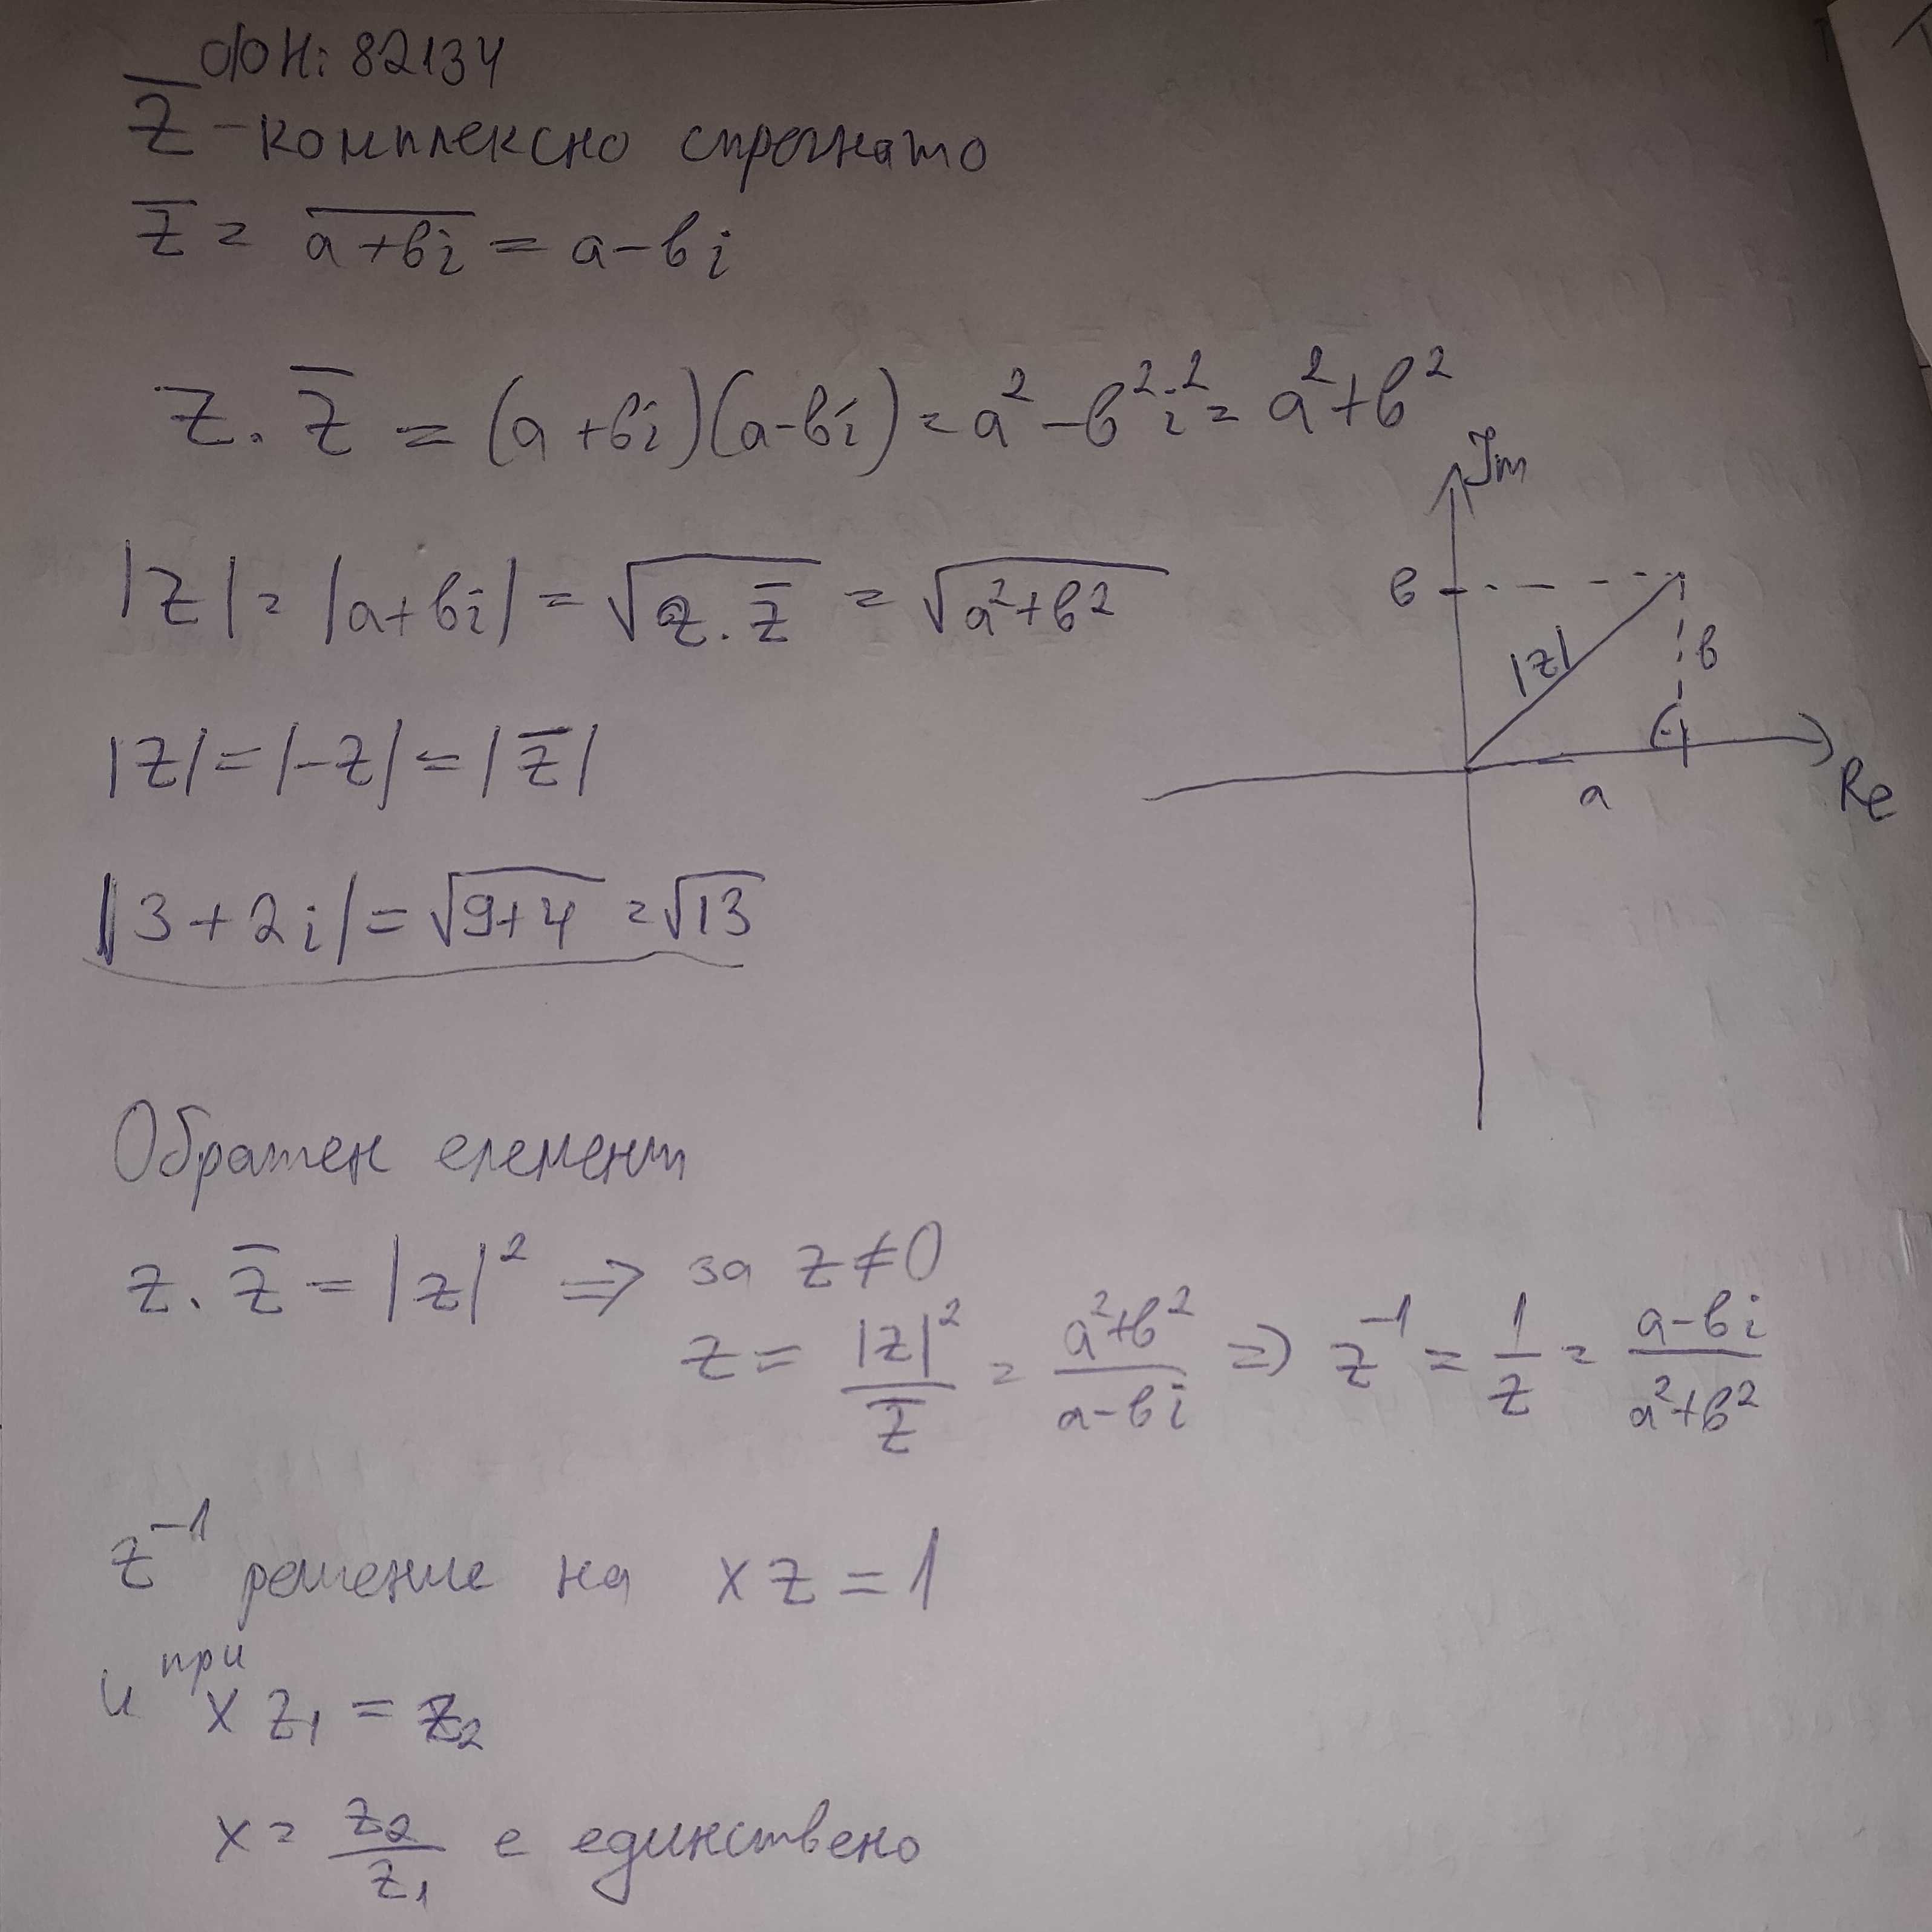 ФН: 82134
z̅ - комплексно спрегнато
z̅ = \overline{a+bi} = a-bi
z . z̅ = (a+bi)(a-bi) = a² - b²i² = a² + b²
|z| = |a+bi| = √(z . z̅) = √(a²+b²)
|z| = |-z| = |z̅|
|3+2i| = √(9+4) = √13
Im
b
|z|
b
a
Re
Обратен елемент
z . z̅ = |z|² ⇒ за z ≠ 0
z = |z|²/z̅ = (a²+b²)/(a-bi) ⇒ z⁻¹ = 1/z = (a-bi)/(a²+b²)
z⁻¹ решение на xz = 1
и при xz₁ = z₂
x = z₂/z₁ е единствено